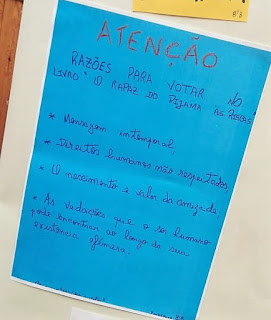 8º3
ATENÇÃO
RAZÕES PARA VOTAR NO
LIVRO "O RAPAZ DO PIJAMA ÀS RISCAS
* Mensagem intemporal;
* Direitos humanos não respeitados;
* O nascimento e valor da amizade;
* As vedações que o ser humano
pode encontrar ao longo da sua
existência efémera.